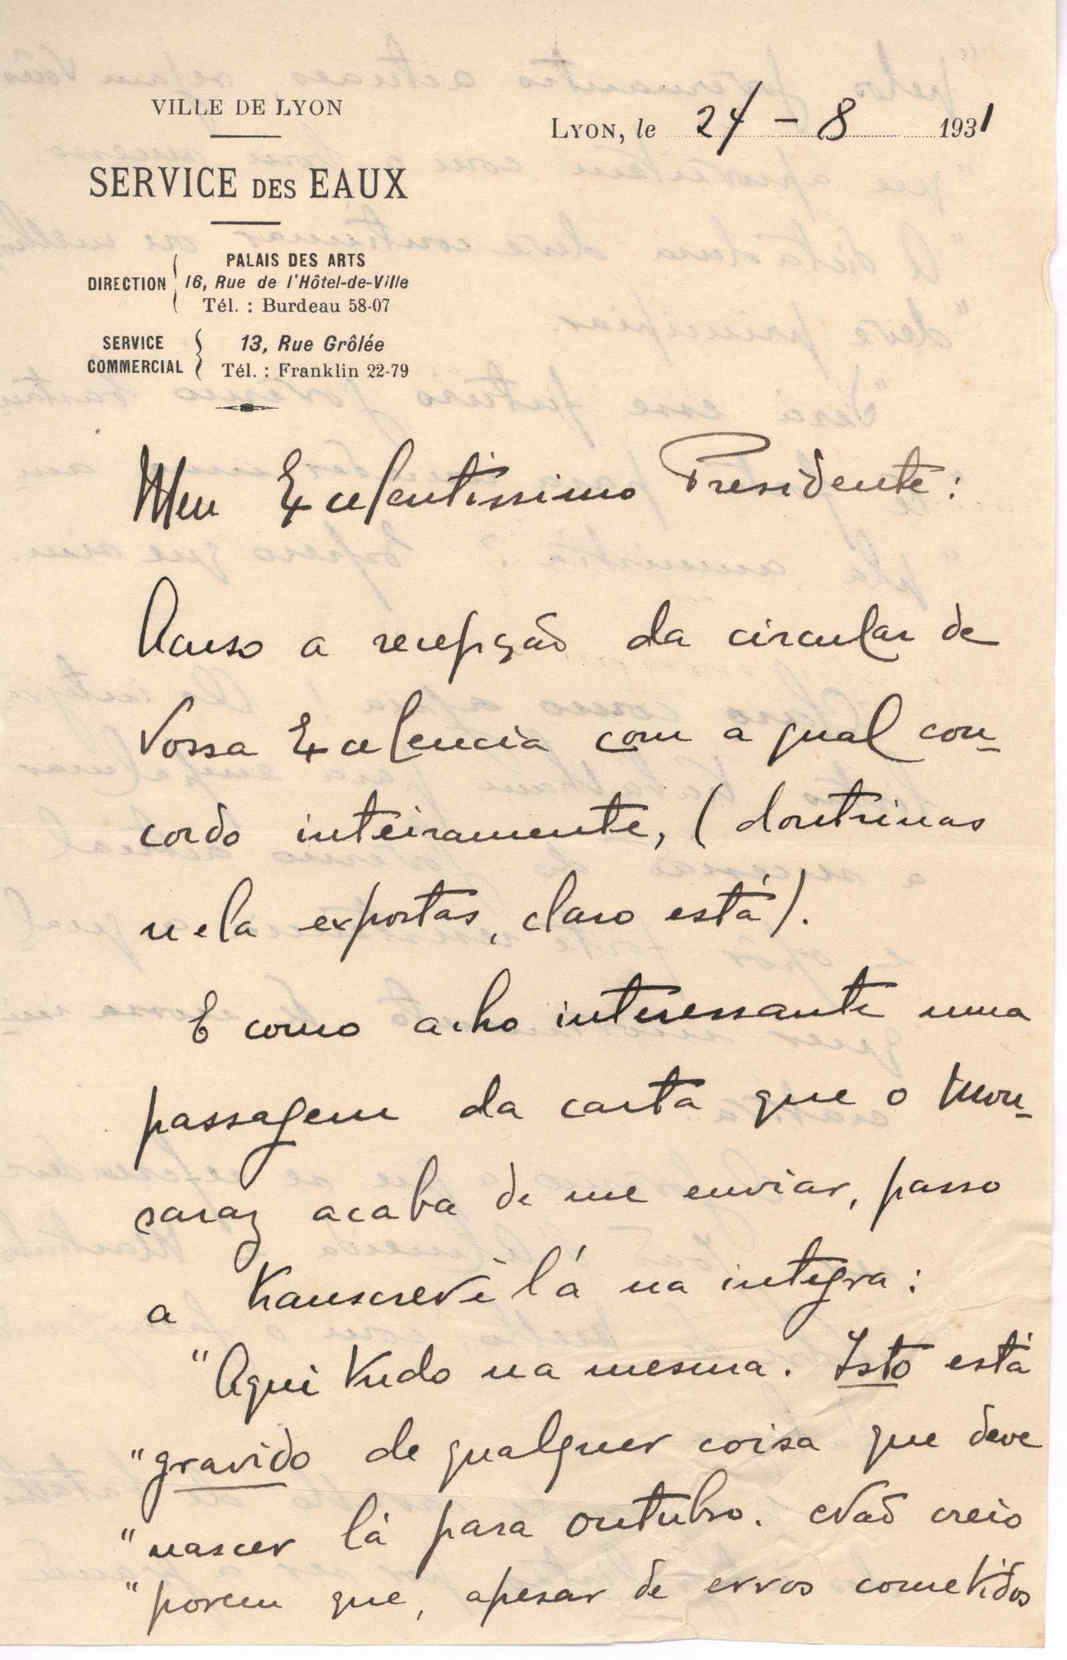 VILLE DE LYON
SERVICE DES EAUX
DIRECTION
PALAIS DES ARTS
16, Rue de l'Hôtel-de-Ville
Tél. : Burdeau 58-07
SERVICE
COMMERCIAL
13, Rue Grôlée
Tél. : Franklin 22-79
LYON, le 24 - 8 1931
Meu Excelentissimo Presidente :
Acuso a recepção da circular de
Vossa Excelencia com a qual con-
cordo inteiramente, (doutrinas
nela expostas, claro está).
E como acho interessante uma
passagem da carta que o Mon-
saraz acaba de me enviar, passo
a transcrevê lá na integra :
"Aqui tudo na mesma. Isto está
"gravido de qualquer coisa que deve
"nascer lá para outubro. Não creio
"porem que, apesar de erros cometidos